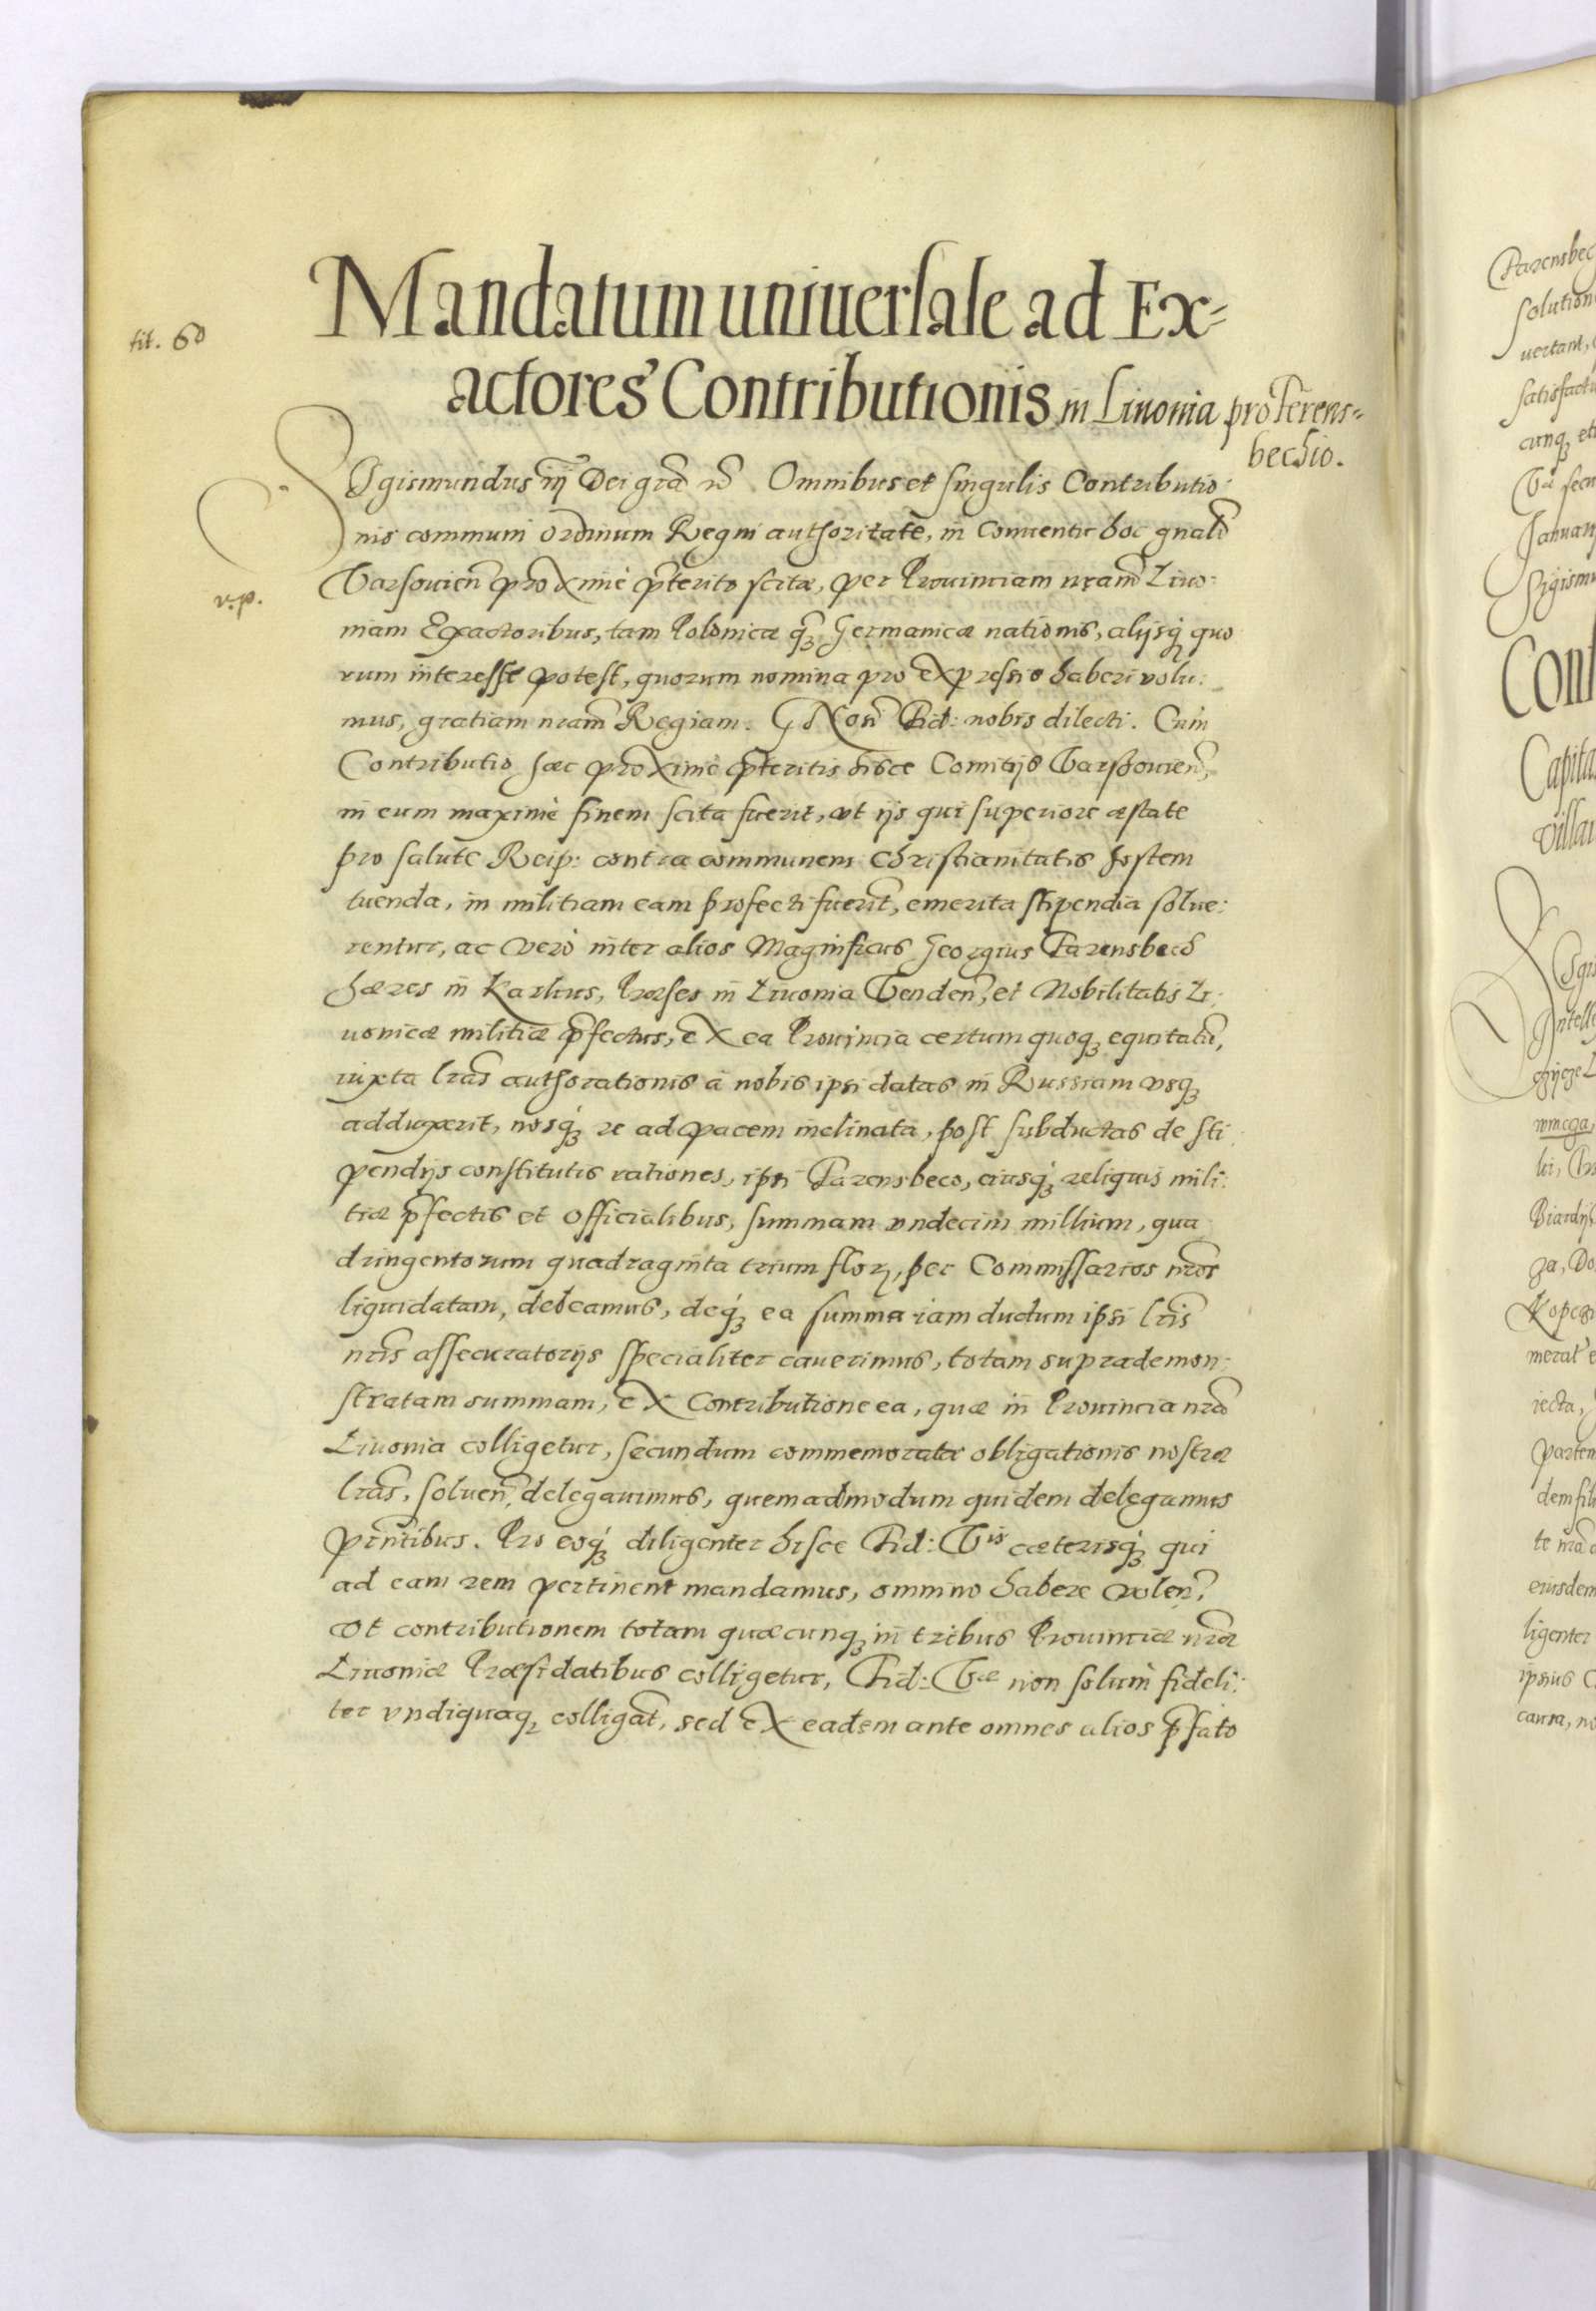 tit. 60
Mandatum uniuersale ad Ex=
actores Contributionis in Liuonia pro Ferens=
bechio.
Sigismundus iij Dei grã &c. Omnibus et singulis Contributio:
nis communi ordinum Regni authoritate, in Conuentu hoc gnali
Varsouien proximè pterito scitæ, per Prouinciam nram Liuo:
v.p.
niam Exactoribus, tam Polonicæ q̃ꝫ Germanicæ nationis, alijsqꝫ quo
rum interesse potest, quorum nomina pro expresso haberi volu:
mus, gratiam nram Regiam. Gñosi Fid: nobis dilecti. Cum
Contributio hæc proximè pteritis hisce Comitijs Varshouien,
in eum maximè finem scita fuerit, vt ijs qui superiore æstate
pro salute Reip: contra communem Christianitatis hostem
tuenda, in militiam eam profecti fuerit, emerita stipendia solue:
rentur, ac verò inter alios Magnificus Georgius Farensbech
hæres in Karkus, Præses in Liuonia Venden, et Nobilitatis Li:
uonicæ militiæ pfectus, ex ea Prouincia certum quoqꝫ equitatũ,
iuxta lras authorationis à nobis ipsi datas in Russiam vsqꝫ
adduxerit, nosqꝫ re ad pacem inclinata, post subductas de sti:
pendijs constitutis rationes, ipsi Farensbeco, eiusqꝫ reliquis mili:
tiæ pfectis et officialibus, summam vndecim millium, qua
dringentorum quadraginta trium flor, per Commissarios nros
liquidatam, debeamus, deqꝫ ea summa iam dudum ipsi lris
nris assecuratorijs specialiter cauerimus, totam suprademon:
stratam summam, ex Contributione ea, quæ in Prouincia nra
Liuonia colligetur, secundum commemoratæ obligationis nostræ
lras, soluen, delegauimus, quemadmodum quidem delegamus
pntibus. Pro eoqꝫ diligenter hisce Fid: Vis cæterisqꝫ qui
ad eam rem pertinent mandamus, omnino habere volen,
vt contributionem totam quæcunqꝫ in tribus Prouinciæ nræ
Liuoniæ Præsidatibus colligetur, Fid: Væ non solum fideli:
ter vndiquaqꝫ colligat, sed ex eadem ante omnes alios pfato
Farensbec
solution
uertant,
satisfact
cunqꝫ et
Januar
Sigism
Conf
Capita
Villa
Sigi
Intelle
wmcga,
Biardijs
ga, Do
Kopcz
merat e
iecta,
partem
dem fil
te nra
eiusdem
ligenter
ipsius C
causa, no